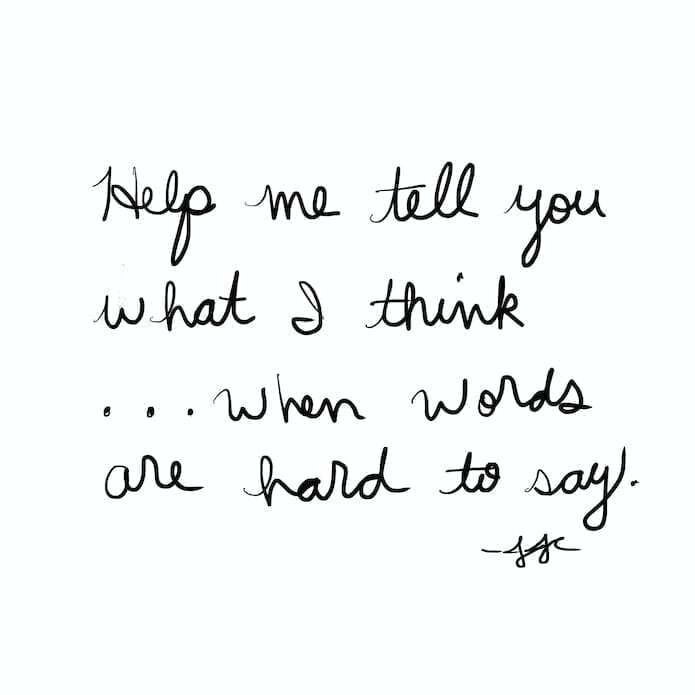 Help me tell you
what I think
...when words
are hard to say.